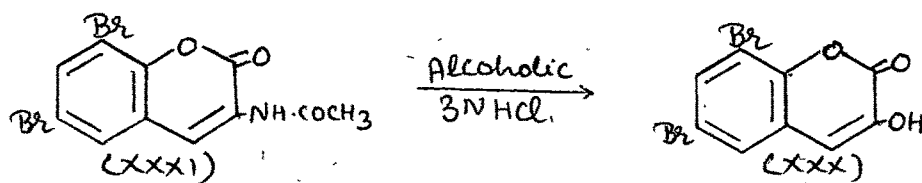 Br
Br
O
O
NH.COCH3
(XXXI)
Alcoholic
3NHCl.
Br
Br
O
O
OH
(XXX)